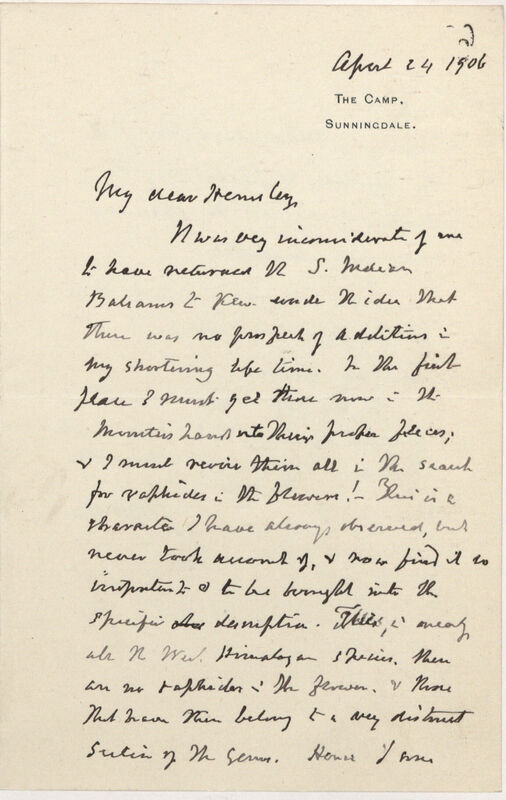 April 24 1906
THE CAMP,
SUNNINGDALE.
My dear Hemsley,
It was very inconsiderate of me
to have returned the S. Indian
Balsams to Kew under the idea that
there was no prospect of additions in
my shortening life time. In the first
place I must get those now in the
hands into their proper places;
& I must revise them all in the search
for raphides in the flowers! — This is a
character I have always observed, but
never took account of, & now find it so
important as to be brought into the
specific description. Thus, in nearly
all the West Himalayan species, there
are no raphides in the flower. & those
that have them belong to a very distinct
Section of the Genus. Hence I am